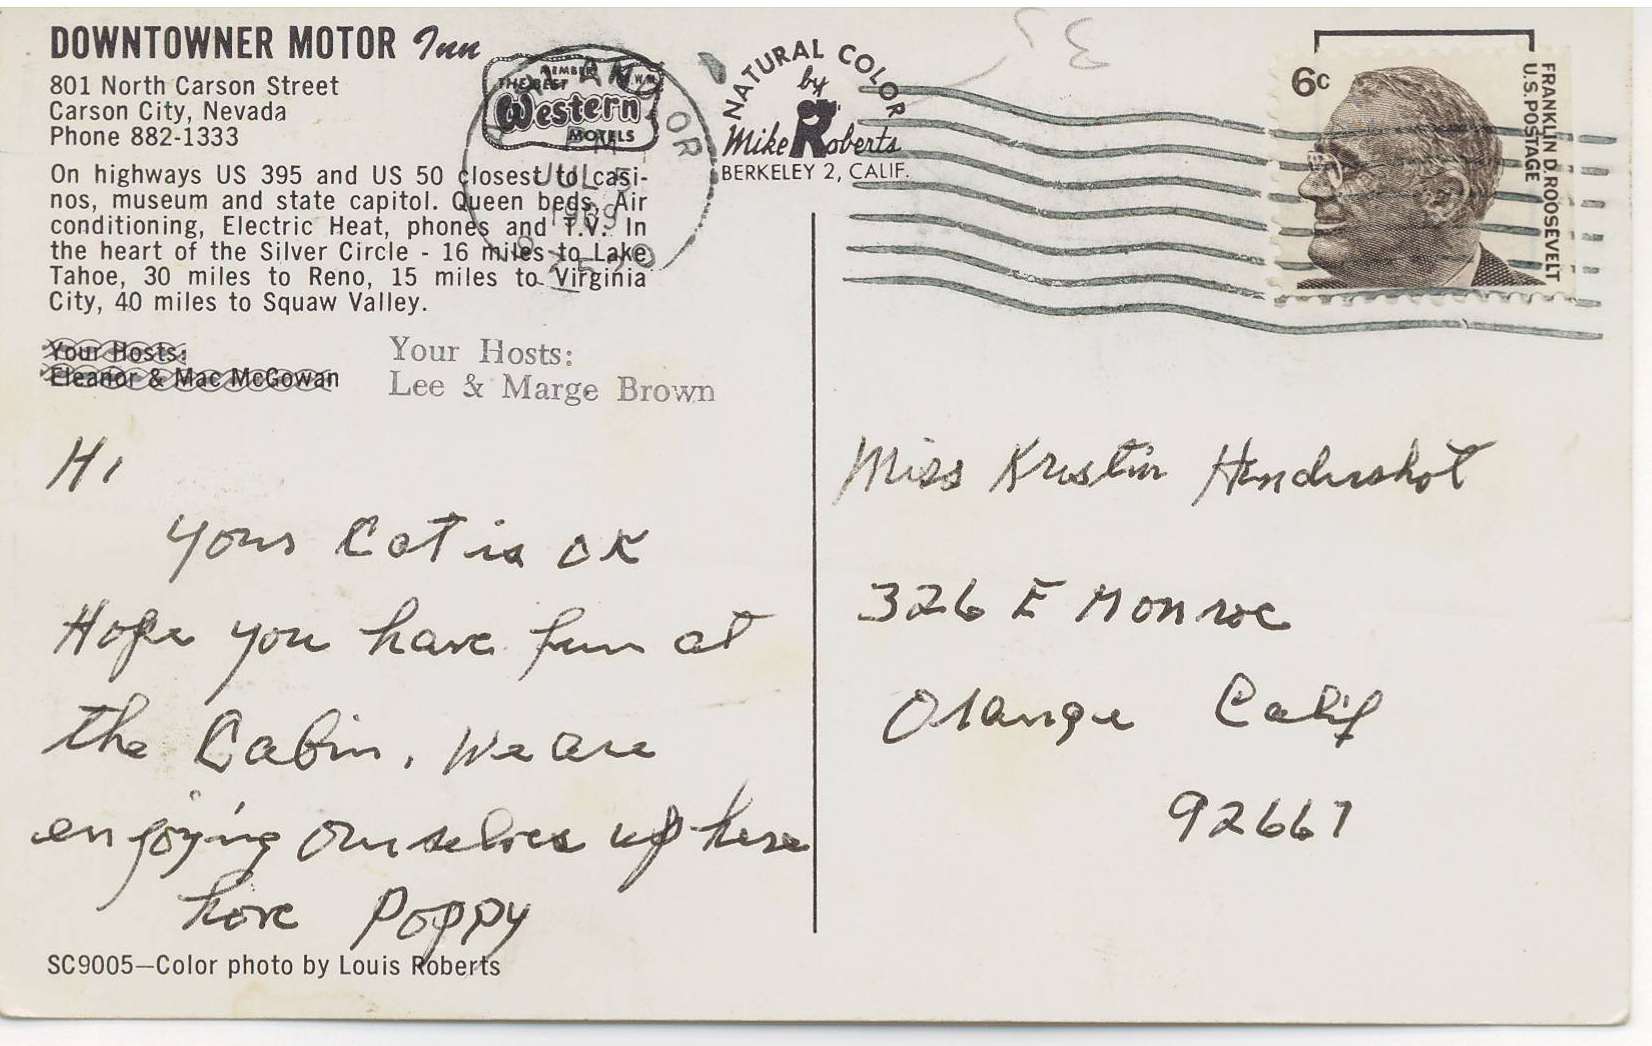 DOWNTOWNER MOTOR Inn
801 North Carson Street
Carson City, Nevada
Phone 882-1333
On highways US 395 and US 50 closest to casi-
nos, museum and state capitol. Queen beds, Air
conditioning, Electric Heat, phones and T.V. In
the heart of the Silver Circle - 16 miles to Lake
Tahoe, 30 miles to Reno, 15 miles to Virginia
City, 40 miles to Squaw Valley.
Your Hosts:
Eleanor & Mac McGowan
Your Hosts:
Lee & Marge Brown
MEMBER
THE BEST
Western
MOTELS
JUL
1969
NATURAL COLOR
by
Mike Roberts
BERKELEY 2, CALIF.
6c
FRANKLIN D. ROOSEVELT
U.S. POSTAGE
Hi
your Cat is OK
Hope you have fun at
the Cabin. We are
enjoying ourselves up here
love Poppy
SC9005—Color photo by Louis Roberts
Miss Kristin Hendershot
326 E Monroe
Orange Calif
92667